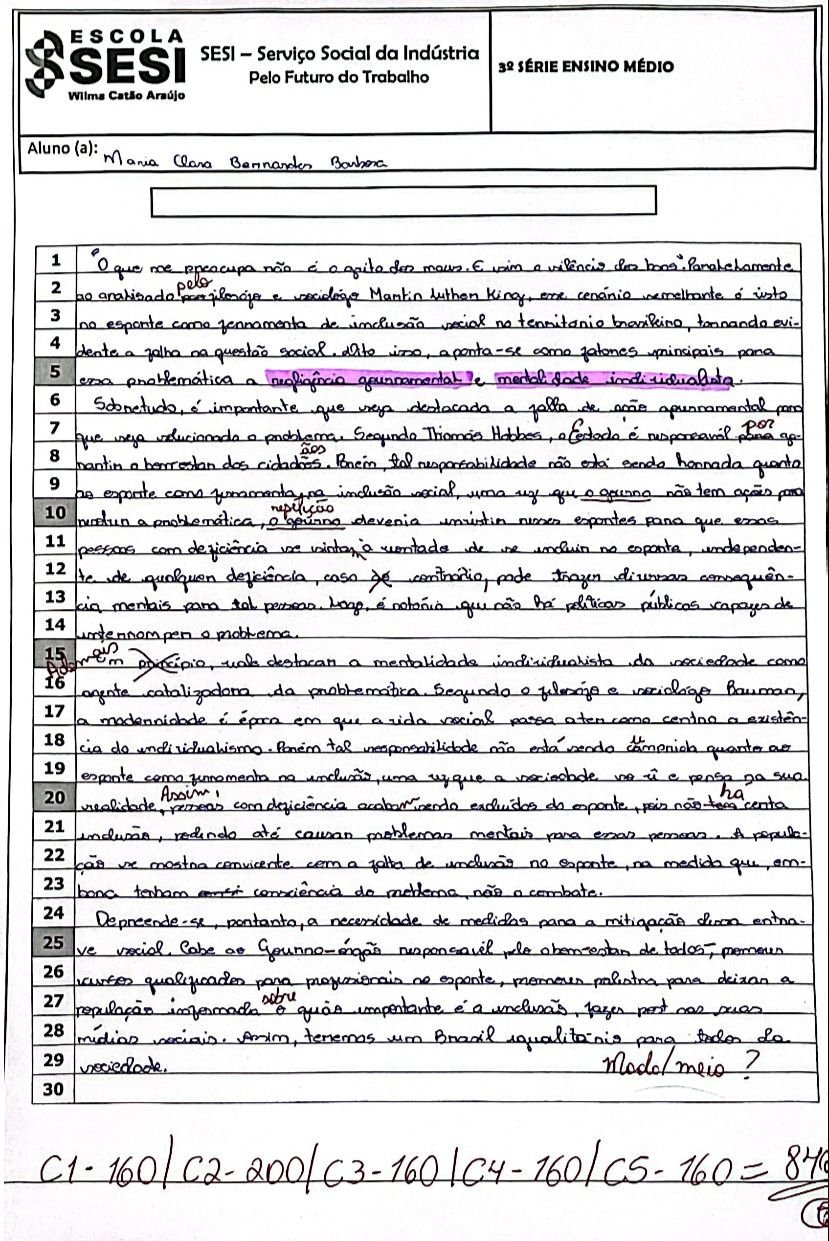 ESCOLA
SESI
Wilma Catão Araújo
SESI – Serviço Social da Indústria
Pelo Futuro do Trabalho
3º SÉRIE ENSINO MÉDIO
Aluno (a): Maria Clara Bernardes Barbosa
1 "O que me preocupa não é o grito dos maus. E sim o silêncio dos bons". Paralelamente
pelo
2 ao analisado filósofo e sociólogo Martin Luther King, esse cenário semelhante é visto
3 no esporte como ferramenta de inclusão social no território brasileiro, tornando evi-
4 dente a falha na questão social. Dito isso, aponta-se como fatores principais para
5 essa problemática a negligência governamental e mentalidade individualista.
6 Sobretudo, é importante que seja destacada a falta de ação governamental para
por
7 que seja solucionado o problema. Segundo Thomas Hobbes, o Estado é responsavél para ga-
ãos
8 rantir o bem estar dos cidadões. Porém, tal responsabilidade não está sendo honrada quanto
9 ao esporte como ferramenta, na inclusão social, uma vez que o governo não tem ações para
repetição
10 reverter a problemática, o governo deveria investir nesses esportes para que essas
11 pessoas com deficiência se sintam à vontade de se incluir no esporte, independen-
12 te de qualquer deficiência, caso contrário, pode trazer diversas consequên-
13 cia mentais para tal pessoas. Logo, é notório que não há políticas públicas capazes de
14 interromper o problema.
Ademais
15 Em princípio, vale destacar a mentalidade individualista da sociedade como
16 agente catalizadora da problemática. Segundo o filósofo e sociólogo Bauman,
17 a modernidade é época em que a vida social passa a ter como centro a existên-
u
18 cia do individualismo. Porém tal responsabilidade não está sendo comprida quanto ao
19 esporte como ferramenta na inclusão, uma vez que a sociedade só vê e pensa na sua
Assim, há
20 realidade, pessoas com deficiência acabam sendo excluídos do esporte, pois não tem certa
21 inclusão, podendo até causar problemas mentais para essas pessoas. A popula-
22 ção se mostra convicente com a falta de inclusão no esporte, na medida que, em-
23 bora tenham consciência do problema, não o combate.
24 Depreende-se, portanto, a necessidade de medidas para a mitigação desse entra-
25 ve social. Cabe ao Governo-órgão responsavél pelo abem-estar de todos-, promover
26 cursos qualificados para profissionais no esporte, promover palestra para deixar a
sobre
27 população informada o quão importante é a inclusão, fazer post nas suas
28 mídias sociais. Assim, teremos um Brasil igualitário para todos da
29 sociedade. Modo/meio ?
30
C1-160/C2-200/C3-160/C4-160/C5-160=840